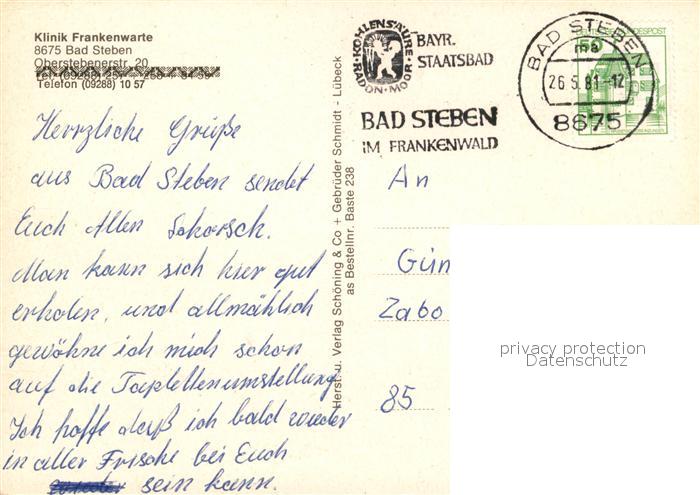 Klinik Frankenwarte
8675 Bad Steben
Oberstebenerstr. 20
Telefon (09288) 10 57
Herzliche Grüße
aus Bad Steben sendet
Euch Allen Schorsch.
Man kann sich hier gut
erholen, und allmählich
gewöhne ich mich schon
auf die Tapletten umstellung
Ich hoffe daß ich bald wieder
in aller Frische bei Euch
sein kann.
Herst. u. Verlag Schöning & Co + Gebrüder Schmidt - Lübeck
as Bestellnr. Baste 238
KOHLENSÄURE
RADON · MOOR
BAYR.
STAATSBAD
BAD STEBEN
IM FRANKENWALD
BAD STEBEN
ma
26.5.81-12
8675
50
An
Gün
Zabo
85
privacy protection
Datenschutz